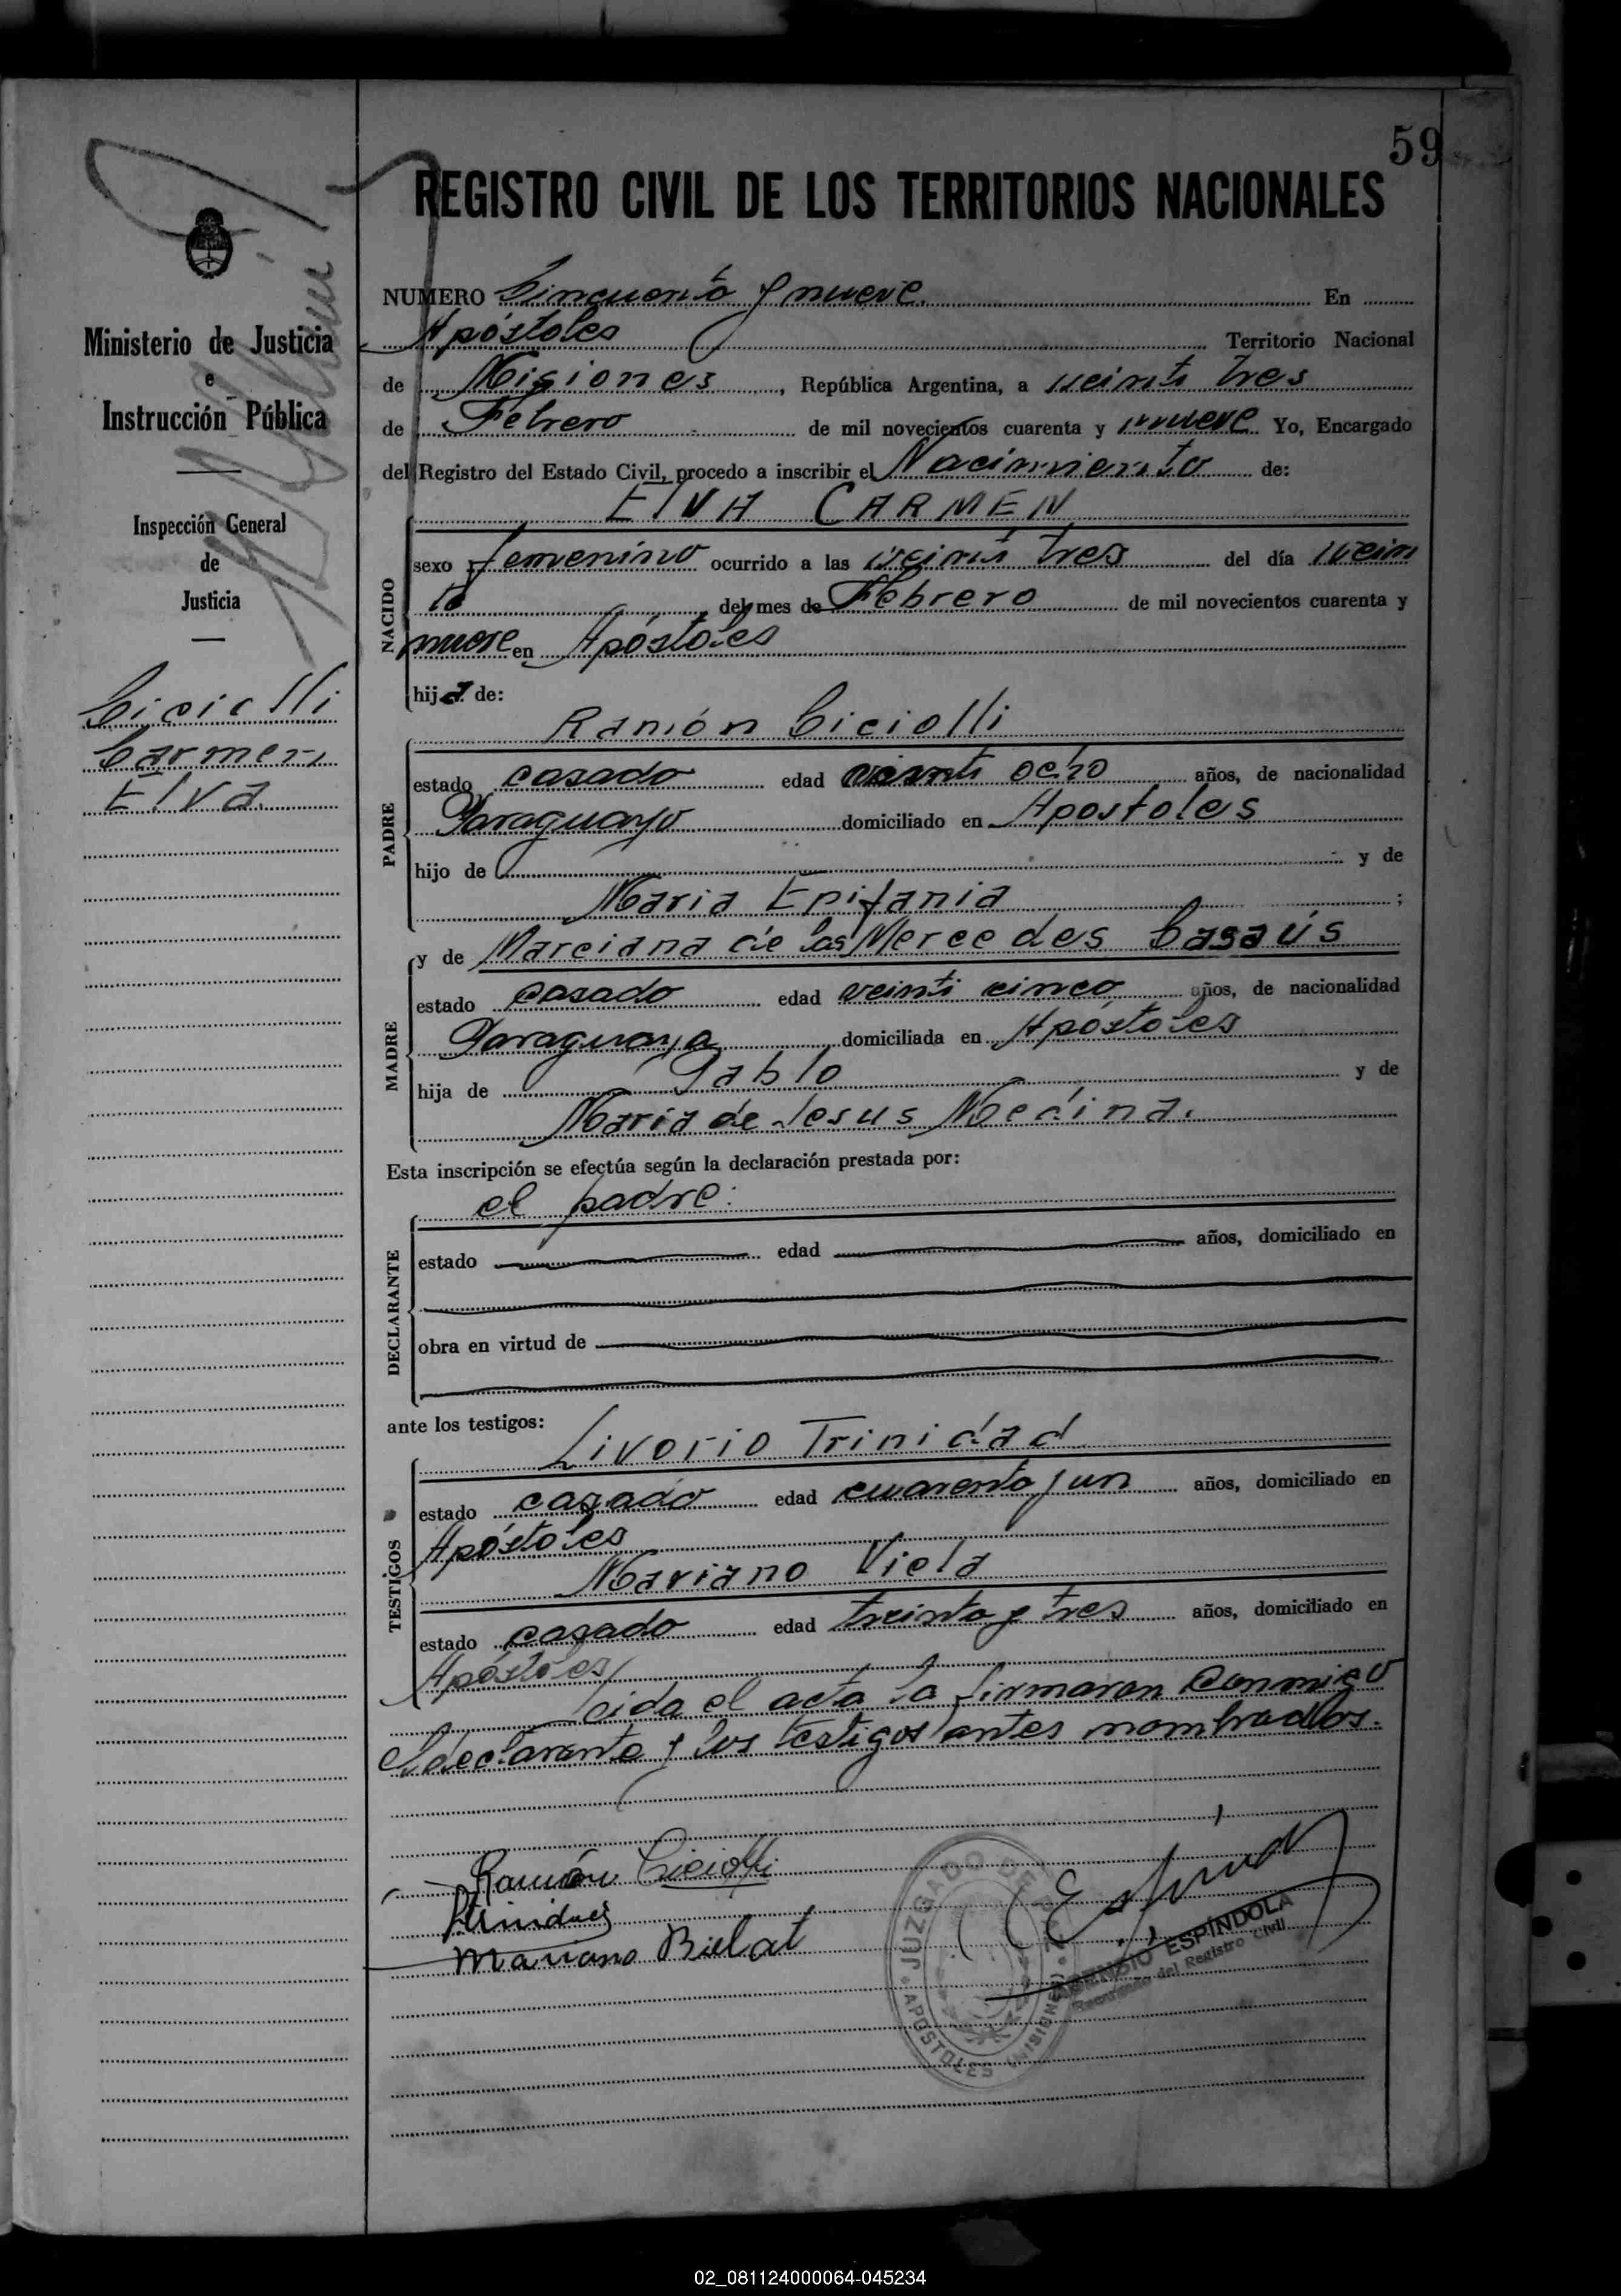 59
REGISTRO CIVIL DE LOS TERRITORIOS NACIONALES
Ministerio de Justicia
e
Instrucción Pública
Inspección General
de
Justicia
Ciciolli
Carmen
Elva
NUMERO Cincuenta y nueve. En
Apóstoles Territorio Nacional
de Misiones, República Argentina, a veinti tres
de Febrero de mil novecientos cuarenta y nueve Yo, Encargado
del Registro del Estado Civil, procedo a inscribir el Nacimiento de:
ElVA CARMEN
NACIDO
sexo femenino ocurrido a las veinti tres del día vein
te del mes de Febrero de mil novecientos cuarenta y
nueve en Apóstoles
hija de:
Ramón Ciciolli
PADRE
estado casado edad veinti ocho años, de nacionalidad
Paraguayo domiciliado en Apostoles
hijo de y de
Maria Epifania ;
y de Marciana de las Mercedes Casaús
MADRE
estado casado edad veinti cinco años, de nacionalidad
Paraguaya domiciliada en Apóstoles
hija de Pablo y de
Maria de Jesus Medina.
Esta inscripción se efectúa según la declaración prestada por:
el padre.
DECLARANTE
estado edad años, domiciliado en
obra en virtud de
ante los testigos:
Livorio Trinidad
TESTIGOS
estado casado edad cuarenta y un años, domiciliado en
Apóstoles
Mariano Viela
estado casado edad treinta y tres años, domiciliado en
Apóstoles
Leida el acta la firmaron conmigo
el declarante y los testigos antes nombrados.
Ramón Ciciolli
Mariano Bielat
JUZGADO DE PAZ
APOSTOLES (MISIONES)
ESPÍNDOLA
Encargado del Registro Civil
02_081124000064-045234